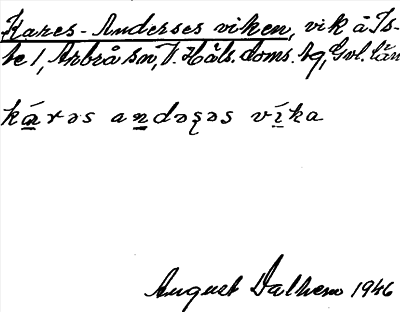 Kares-Anderses viken, vik å Is-
te 1, Arbrå sn, V. Häls. doms. tg, Gvl. län
kárəs andəʂəs víka
August Dalhem 1946